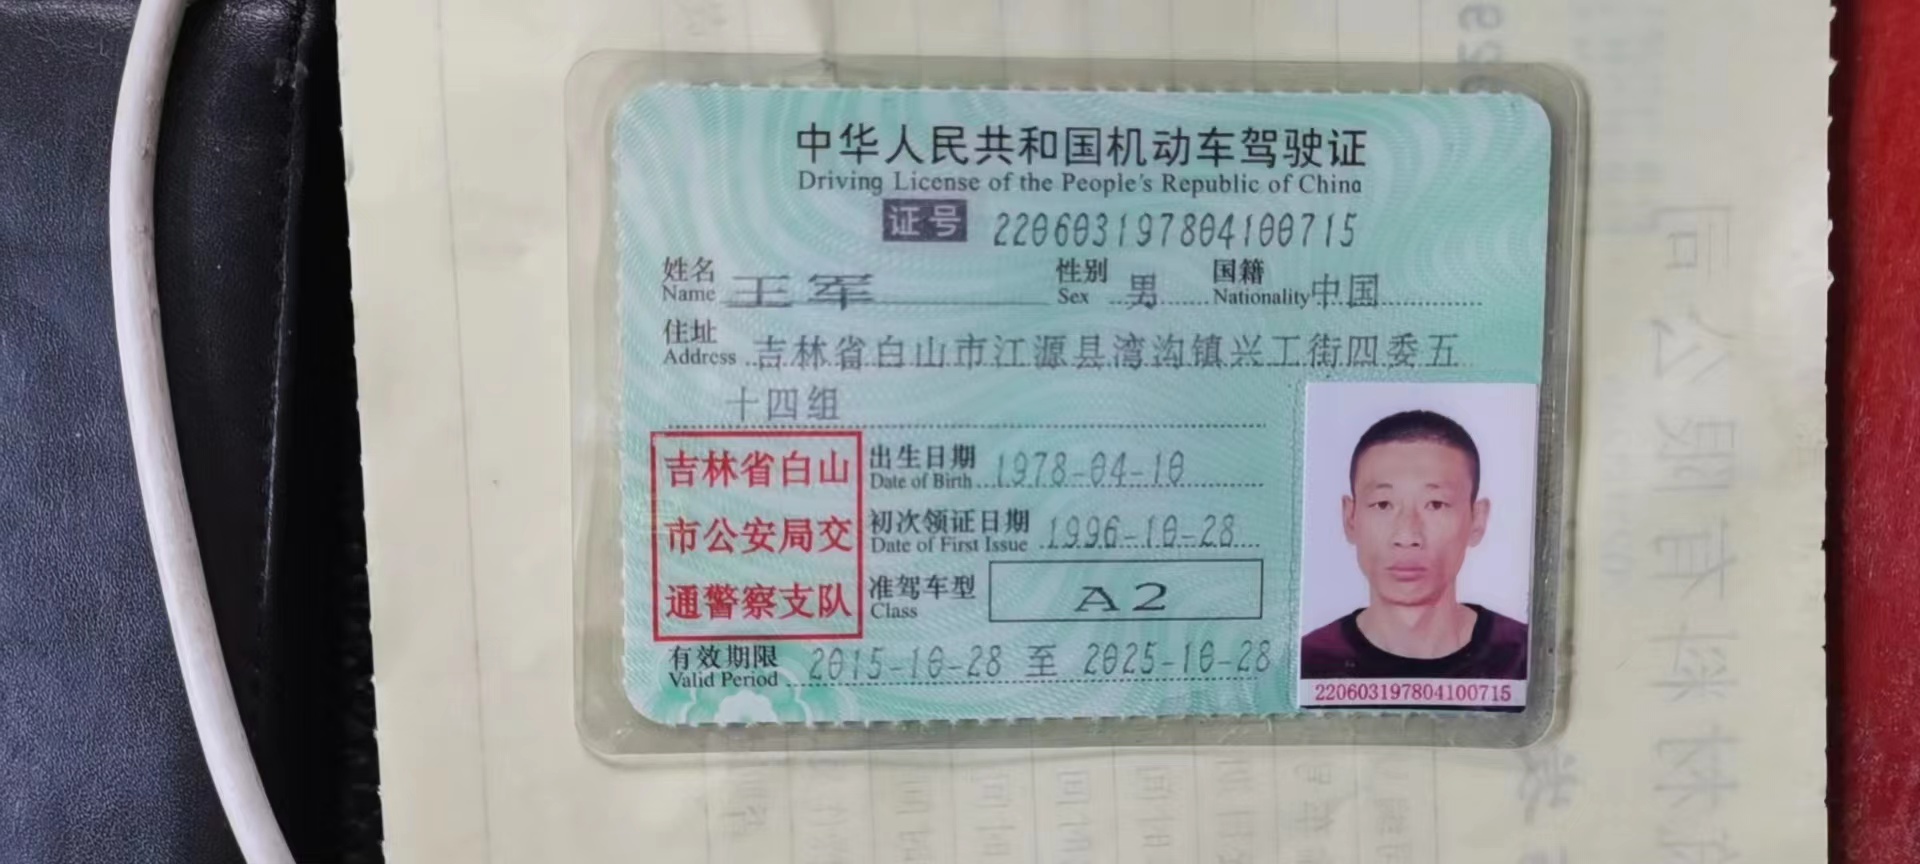 中华人民共和国机动车驾驶证
Driving License of the People's Republic of China
证号 220603197804100715
姓名 王军 性别 男 国籍 中国
Name Sex Nationality
住址 吉林省白山市江源县湾沟镇兴工街四委五
Address
十四组
吉林省白山
市公安局交
通警察支队
出生日期 1978-04-10
Date of Birth
初次领证日期 1996-10-28
Date of First Issue
准驾车型 A2
Class
有效期限 2015-10-28 至 2025-10-28
Valid Period
220603197804100715